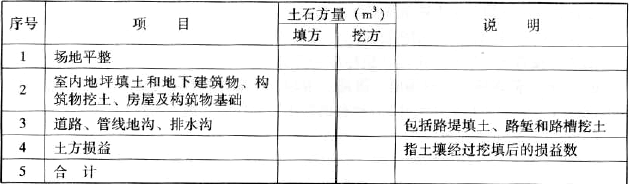 序号 项目 土石方量(m³) 说明
填方 挖方
1 场地平整
2 室内地坪填土和地下建筑物、构
筑物挖土、房屋及构筑物基础
3 道路、管线地沟、排水沟 包括路堤填土、路堑和路槽挖土
4 土方损益 指土壤经过挖填后的损益数
5 合计